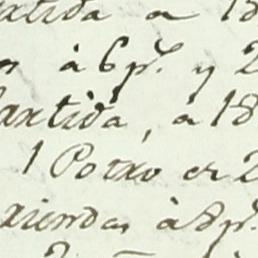 artida a 18
à 6 p.s y 2
Partida, à 18
1 Potro en 2
riendas à 8 p.s